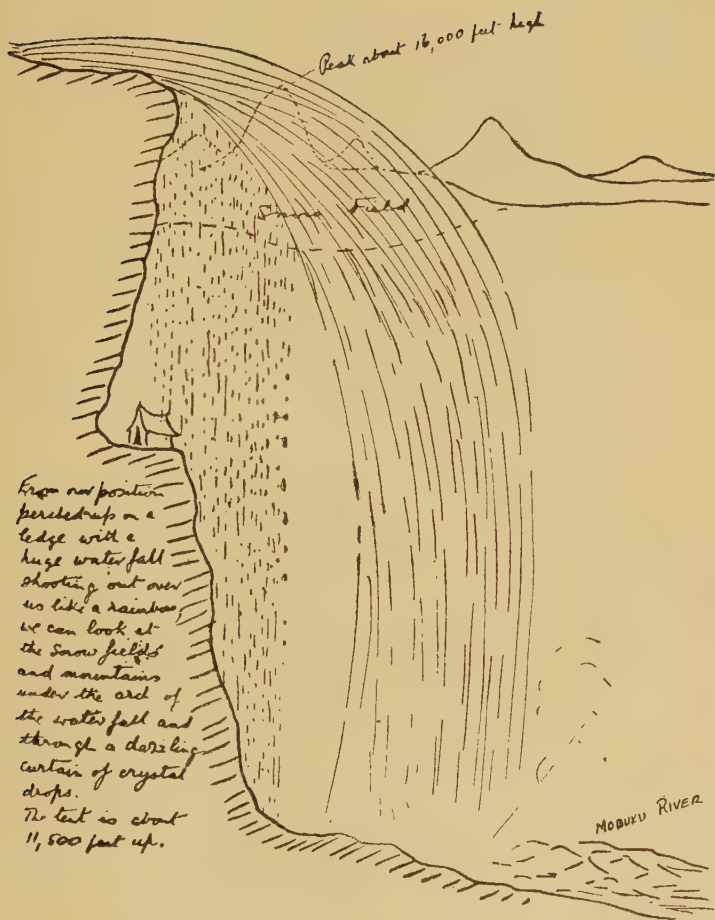 Peak about 16,000 feet high
Snow Field
From our position
perched up on a
ledge with a
huge water fall
shooting out over
us like a rainbow,
we can look at
the snow fields
and mountains
under the arch of
the water fall and
through a dazzling
curtain of crystal
drops.
The tent is about
11,500 feet up.
MOBUKU RIVER